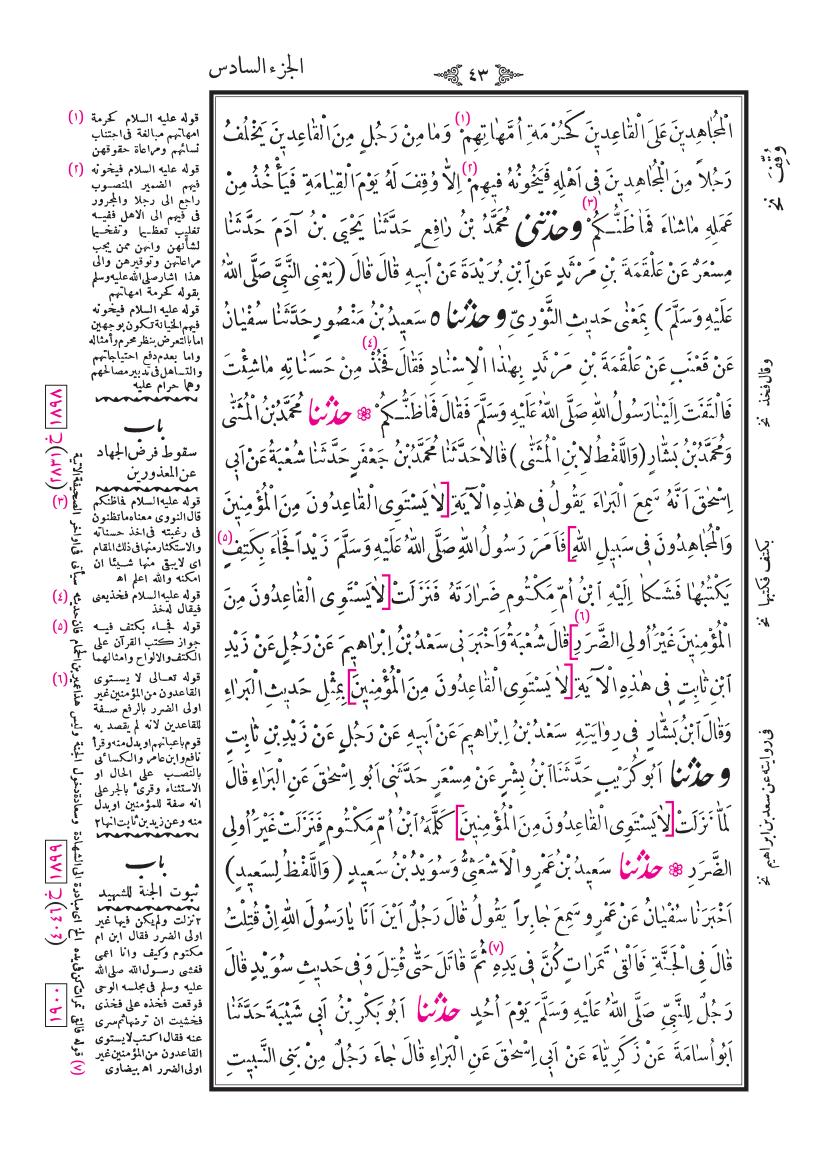 الجزء السادس
٤٣
الْمُجَاهِدِينَ عَلَى الْقَاعِدِينَ كَحُرْمَةِ أُمَّهَاتِهِمْ (١) وَمَا مِنْ رَجُلٍ مِنَ الْقَاعِدِينَ يَخْلُفُ
رَجُلاً مِنَ الْمُجَاهِدِينَ فِي أَهْلِهِ فَيَخُونُهُ فِيهِمْ (٢) إِلاَّ وُقِفَ لَهُ يَوْمَ الْقِيَامَةِ فَيَأْخُذُ مِنْ
عَمَلِهِ مَا شَاءَ فَمَا ظَنُّكُمْ (٣) وحدثنى مُحَمَّدُ بْنُ رَافِعٍ حَدَّثَنَا يَحْيَى بْنُ آدَمَ حَدَّثَنَا
مِسْعَرٌ عَنْ عَلْقَمَةَ بْنِ مَرْثَدٍ عَنِ ابْنِ بُرَيْدَةَ عَنْ أَبِيهِ قَالَ قَالَ (يَعْنِي النَّبِيَّ صَلَّى اللهُ
عَلَيْهِ وَسَلَّمَ) بِمَعْنَى حَدِيثِ الثَّوْرِيِّ وحدثنا ٥ سَعِيدُ بْنُ مَنْصُورٍ حَدَّثَنَا سُفْيَانُ
عَنْ قَعْنَبٍ عَنْ عَلْقَمَةَ بْنِ مَرْثَدٍ بِهٰذَا الْإِسْنَادِ فَقَالَ فَخُذْ (٤) مِنْ حَسَنَاتِهِ مَا شِئْتَ
فَالْتَفَتَ إِلَيْنَا رَسُولُ اللهِ صَلَّى اللهُ عَلَيْهِ وَسَلَّمَ فَقَالَ فَمَا ظَنُّكُمْ ❁ حدثنا مُحَمَّدُ بْنُ الْمُثَنَّى
وَمُحَمَّدُ بْنُ بَشَّارٍ (وَاللَّفْظُ لِابْنِ الْمُثَنَّى) قَالَا حَدَّثَنَا مُحَمَّدُ بْنُ جَعْفَرٍ حَدَّثَنَا شُعْبَةُ عَنْ أَبِي
إِسْحٰقَ أَنَّهُ سَمِعَ الْبَرَاءَ يَقُولُ فِي هٰذِهِ الْآيَةِ [لَا يَسْتَوِي الْقَاعِدُونَ مِنَ الْمُؤْمِنِينَ
وَالْمُجَاهِدُونَ فِي سَبِيلِ اللهِ] فَأَمَرَ رَسُولُ اللهِ صَلَّى اللهُ عَلَيْهِ وَسَلَّمَ زَيْداً فَجَاءَ بِكَتِفٍ (٥)
يَكْتُبُهَا فَشَكَا إِلَيْهِ ابْنُ أُمِّ مَكْتُومٍ ضَرَارَتَهُ فَنَزَلَتْ [لَا يَسْتَوِي الْقَاعِدُونَ مِنَ
الْمُؤْمِنِينَ غَيْرُ أُولِي الضَّرَرِ] (٦) قَالَ شُعْبَةُ وَأَخْبَرَنِي سَعْدُ بْنُ إِبْرَاهِيمَ عَنْ رَجُلٍ عَنْ زَيْدِ
ابْنِ ثَابِتٍ فِي هٰذِهِ الْآيَةِ [لَا يَسْتَوِي الْقَاعِدُونَ مِنَ الْمُؤْمِنِينَ] بِمِثْلِ حَدِيثِ الْبَرَاءِ
وَقَالَ ابْنُ بَشَّارٍ فِي رِوَايَتِهِ سَعْدُ بْنُ إِبْرَاهِيمَ عَنْ أَبِيهِ عَنْ رَجُلٍ عَنْ زَيْدِ بْنِ ثَابِتٍ
وحدثنا أَبُو كُرَيْبٍ حَدَّثَنَا ابْنُ بِشْرٍ عَنْ مِسْعَرٍ حَدَّثَنِي أَبُو إِسْحٰقَ عَنِ الْبَرَاءِ قَالَ
لَمَّا نَزَلَتْ [لَا يَسْتَوِي الْقَاعِدُونَ مِنَ الْمُؤْمِنِينَ] كَلَّمَهُ ابْنُ أُمِّ مَكْتُومٍ فَنَزَلَتْ غَيْرُ أُولِي
الضَّرَرِ ❁ حدثنا سَعِيدُ بْنُ عَمْرٍو الْأَشْعَثِيُّ وَسُوَيْدُ بْنُ سَعِيدٍ (وَاللَّفْظُ لِسَعِيدٍ)
أَخْبَرَنَا سُفْيَانُ عَنْ عَمْرٍو سَمِعَ جَابِراً يَقُولُ قَالَ رَجُلٌ أَيْنَ أَنَا يَا رَسُولَ اللهِ إِنْ قُتِلْتُ
قَالَ فِي الْجَنَّةِ فَأَلْقَى تَمَرَاتٍ كُنَّ فِي يَدِهِ (٧) ثُمَّ قَاتَلَ حَتَّى قُتِلَ وَفِي حَدِيثِ سُوَيْدٍ قَالَ
رَجُلٌ لِلنَّبِيِّ صَلَّى اللهُ عَلَيْهِ وَسَلَّمَ يَوْمَ أُحُدٍ حدثنا أَبُو بَكْرِ بْنُ أَبِي شَيْبَةَ حَدَّثَنَا
أَبُو أُسَامَةَ عَنْ زَكَرِيَّاءَ عَنْ أَبِي إِسْحٰقَ عَنِ الْبَرَاءِ قَالَ جَاءَ رَجُلٌ مِنْ بَنِي النَّبِيتِ
وُقِّفَ نخ
وقال فخذ نخ
بكتف فكتبها نخ
فى روايته عن سعد بن ابراهيم نخ
(١) قوله عليه السلام كحرمة
امهاتهم مبالغة فى اجتناب
نسائهم ومراعاة حقوقهن
(٢) قوله عليه السلام فيخونه
فيهم الضمير المنصوب
راجع الى رجلا والمجرور
فى فيهم الى الاهل ففيه
تغليب تعظيما وتفخيما
لشأنهن وانهن ممن يجب
مراعاتهن وتوقيرهن والى
هذا اشار صلى الله عليه وسلم
بقوله كحرمة امهاتهم
قوله عليه السلام فيخونه
فيهم الخيانة تكون بوجهين
اما بالتعرض بنظر محرم وأمثاله
واما بعدم دفع احتياجاتهم
والتساهل فى تدبير مصالحهم
وهما حرام عليه
باب
سقوط فرض الجهاد
عن المعذورين
(٣) قوله عليه السلام فما ظنكم
قال النووى معناه ما تظنون
فى رغبته فى اخذ حسناته
والاستكثار منها فى ذلك المقام
اى لا يبقى منها شيئا ان
امكنه والله اعلم اه
(٤) قوله عليه السلام فخذ يعنى
فيقال له خذ
(٥) قوله فجاء بكتف فيه
جواز كتب القرآن على
الكتف والالواح وامثالهما
(٦) قوله تعالى لا يستوى
القاعدون من المؤمنين غير
اولى الضرر بالرفع صفة
للقاعدين لانه لم يقصد به
قوم باعيانهم او بدل منه وقرأ
نافع وابن عامر والكسائى
بالنصب على الحال او
الاستثناء وقرئ بالجر على
انه صفة للمؤمنين او بدل
منه وعن زيد بن ثابت انها ٢
باب
ثبوت الجنة للشهيد
٢ نزلت ولم يكن فيها غير
اولى الضرر فقال ابن ام
مكتوم وكيف وانا اعمى
فغشى رسول الله صلى الله
عليه وسلم فى مجلسه الوحى
فوقعت فخذه على فخذى
فخشيت ان ترضها ثم سرى
عنه فقال اكتب لا يستوى
القاعدون من المؤمنين غير
اولى الضرر اه بيضاوى
(٧) قوله فالقى تمرات كن فى يده الخ اى مبادرة الى الشهادة ومسارعة دخول الجنة وليس هذا عمير بن الحمام فان حديثه سيأتى فى اواخر الصحيفة الآتية
١٨٩٨ خ (٢٨٣١)
١٨٩٩ خ (٤٠٤٦)
١٩٠٠